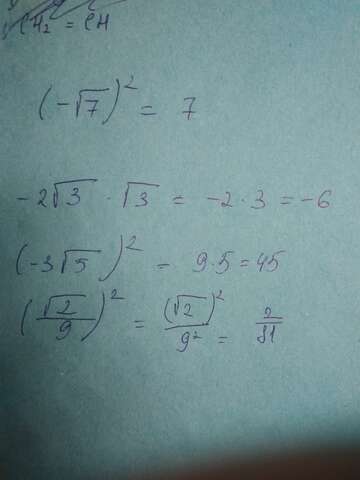 CH₂ = CH
(-√7)² = 7
-2√3 · √3 = -2·3 = -6
(-3√5)² = 9·5 = 45
(√2/9)² = (√2)²/9² = 2/81